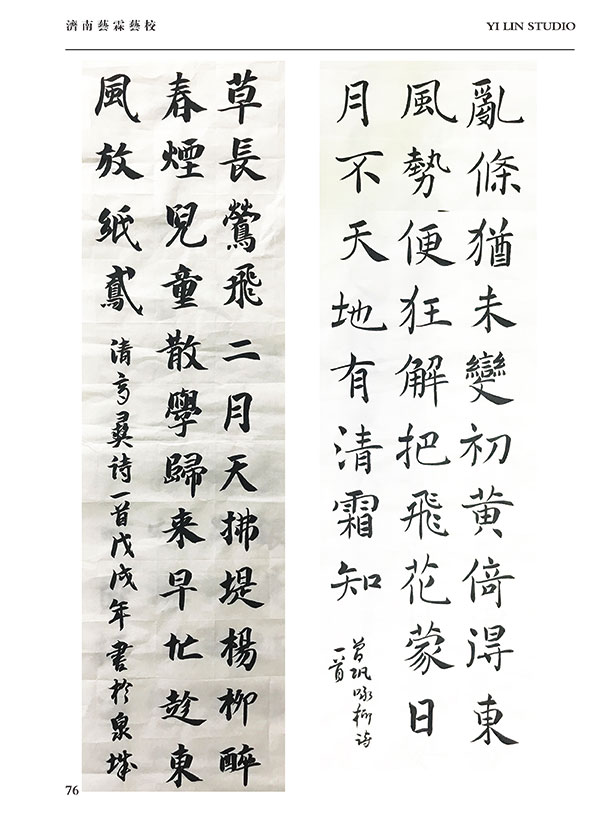 濟南藝霖藝校
YI LIN STUDIO
亂條猶未變初黃倚得東
風勢便狂解把飛花蒙日
月不天地有清霜知
曾巩咏柳诗
一首
草長鶯飛二月天拂堤楊柳醉
春煙兒童散學歸来早忙趂東
風放紙鳶
清诗一首戊戌年書於泉城
76